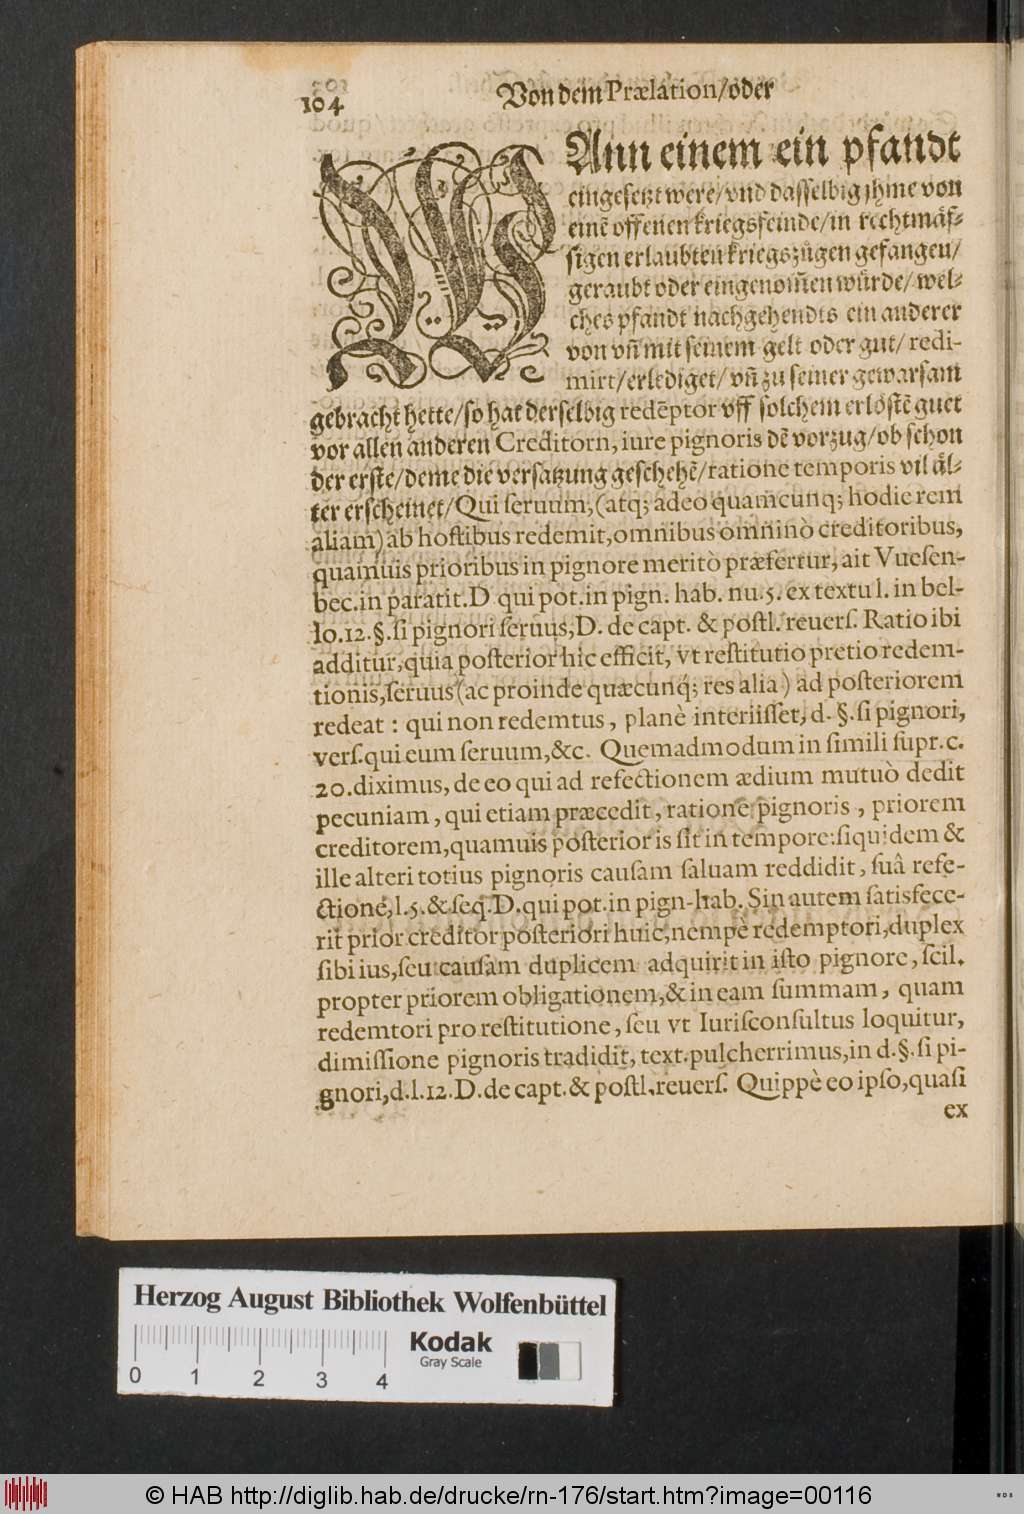 104
Von dem Prælation/oder
WAnn einem ein pfandt
eingesetzt were/vnd dasselbig jhme von
einē offenen kriegsfeinde/in rechtmäs-
sigen erlaubten kriegszügen gefangen/
geraubt oder eingenom̄en würde/ wel-
ches pfandt nachgehendts ein anderer
von vn̄ mit seinem gelt oder gut/ redi-
mirt/erlediget/vn̄ zu seiner gewarsam
gebracht hette/so hat derselbig redēptor vff solchem erlöstē guet
vor allen anderen Creditorn, iure pignoris dē vorzug/ob schon
der erste/deme die versatzung geschehē/ratione temporis vil äl-
ter erscheinet/Qui ſeruum,(atq; adeo quamcunq; hodie rem
aliam) ab hoſtibus redemit,omnibus omninò creditoribus,
quamuis prioribus in pignore meritò præfertur, ait Vueſen-
bec.in paratit.D qui pot.in pign. hab. nu.5. ex textu l. in bel-
lo.12.§.ſi pignori ſeruus,D. de capt. & poſtl. reuerſ. Ratio ibi
additur,quia poſterior hic efficit, vt reſtitutio pretio redem-
tionis,ſeruus(ac proinde quæcunq; res alia) ad poſteriorem
redeat : qui non redemtus, planè interiiſſet, d. §.ſi pignori,
verſ.qui eum ſeruum,&c. Quemadmodum in ſimili ſupr.c.
20.diximus, de eo qui ad refectionem ædium mutuò dedit
pecuniam, qui etiam præcedit, ratione pignoris, priorem
creditorem,quamuis poſterior is ſit in tempore:ſiquidem &
ille alteri totius pignoris cauſam ſaluam reddidit, ſuâ refe-
ctione,l.5.&ſeq.D.qui pot.in pign-hab. Sin autem ſatisfece-
rit prior creditor poſteriori huic,nempè redemptori,duplex
ſibi ius,ſeu cauſam duplicem adquirit in iſto pignore, ſcil.
propter priorem obligationem,& in eam ſummam, quam
redemtori pro reſtitutione, ſeu vt Iuriſconſultus loquitur,
dimiſſione pignoris tradidit, text.pulcherrimus,in d.§.ſi pi-
gnori,d.l.12.D.de capt.& poſtl.reuerſ. Quippè eo ipſo,quaſi
ex
Herzog August Bibliothek Wolfenbüttel
Kodak
Gray Scale
0 1 2 3 4
© HAB http://diglib.hab.de/drucke/rn-176/start.htm?image=00116